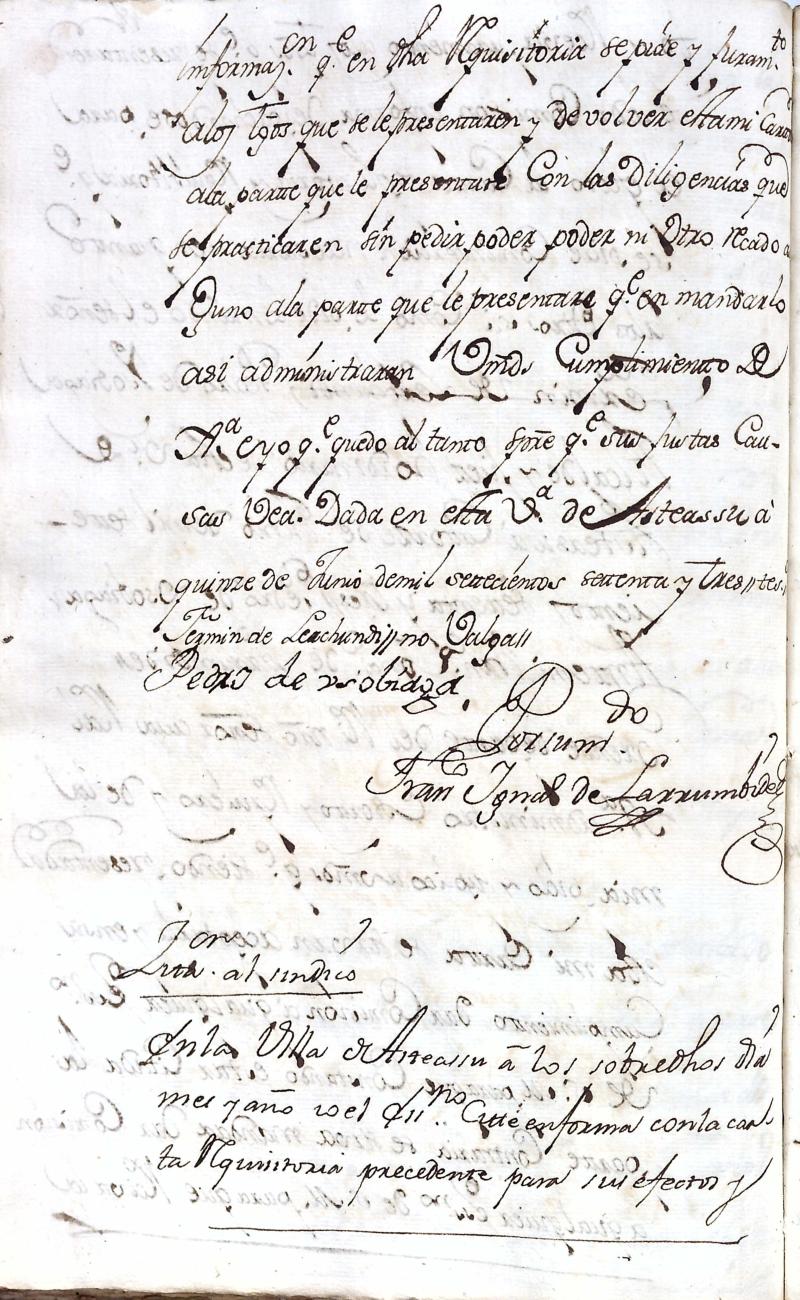 Informaz.en q.e en dha Rquisitoria se pide y Juram.to
alos tgos. que se le presentaren y devolver esta mi Carta
ala partte que le presentare Con las Diligencias que
se practicaren sin pedir poder poder ni Otro recado a
Quno ala partte que le presentare q.e en mandarlo
asi administraran Vmds Cumptimientto
A.a e yo q.e quedo al tanto spre q.e sus justas Cau-
sas Vea. Dada en esta V.a de Asteassu à
quinze de Junio demil settecientos settenta y tres //tes.
Fermin de Lerchundi // no Valga //
Pedro de Usobiaga.
Por su m.do
Fran.co Ignac de Larrumbide
al sindico
En la Villa de Asteassu a los sobredhos dia
mes y año io el Ess.no Citte en forma con la car
ta Rquisitoria precedente para sus efectos y